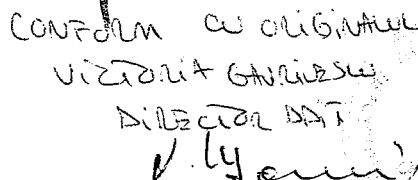 CONFORM CU ORIGINALUL
VICTORIA GAVRILESCU
DIRECTOR DAT